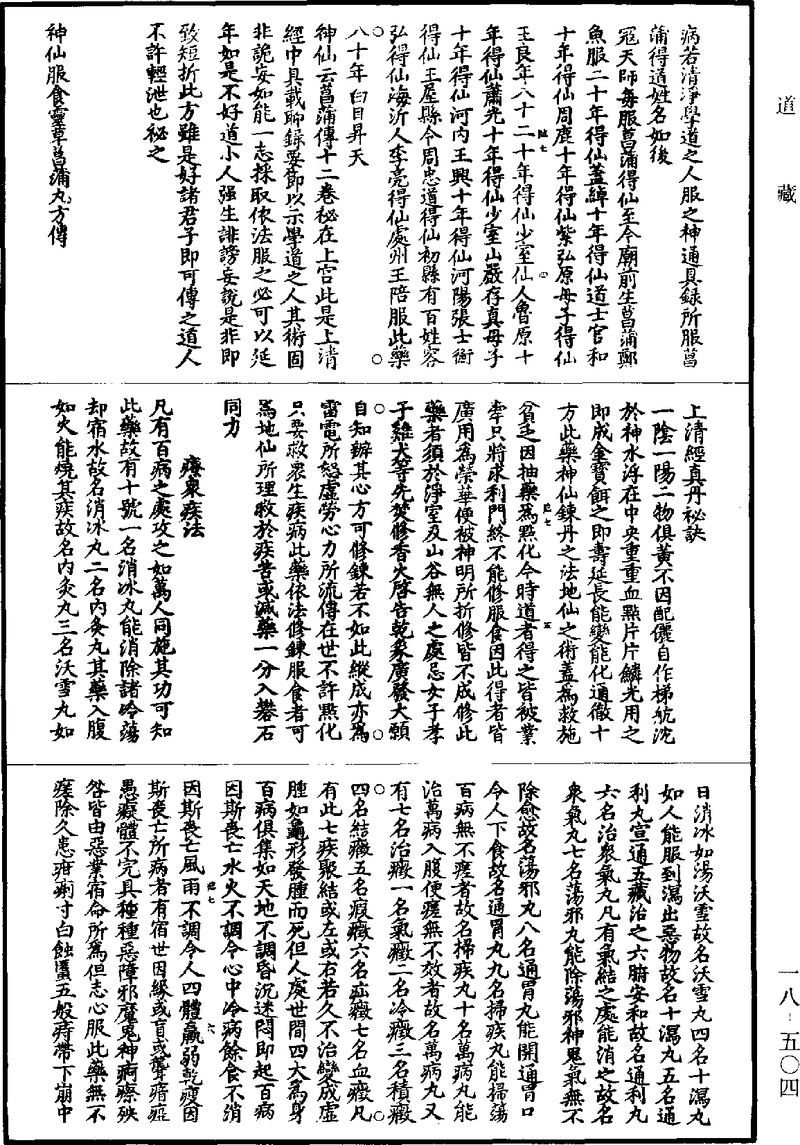 道藏
病若清淨學道之人服之神通具錄所服菖
蒲得道姓名如後
寇天師每服菖蒲得仙至今廟前生菖蒲鄭
魚服二十年得仙蓋綽十年得仙道士官和
十年得仙周鹿十年得仙紫弘原母子得仙
王良年八十二十年得仙少室仙人魯原十
年得仙蕭先十年得仙少室山嚴存真母子
十年得仙河內王興十年得仙河陽張士衡
得仙王屋縣令周忠道得仙初縣有百姓容
弘得仙海沂人李亮得仙處州王陪服此藥
八十年白日昇天
神仙云菖蒲傳十二卷秘在上宮此是上清
經中具載聊錄要節以示學道之人其術固
非詭妄如能一志採取依法服之必可以延
年如是不好道小人强生誹謗妄說是非即
致短折此方雖是好諸君子即可傳之道人
不許輕泄也秘之
神仙服食靈草菖蒲丸方傳
上清經真丹祕訣
一陰一陽二物俱黃不因配儷自作梯航沈
於神水浮在中央重重血點片片鱗光用之
即成金寶餌之即壽延長能變能化通徹十
方此藥神仙鍊丹之法地仙之術蓋為救施
貧乏因抽藥為點化今時道者得之皆被業
牽只將求利門終不能修服食因此得者皆
廣用為榮華便被神明所折修皆不成修此
藥者須於淨室及山谷無人之處忌女子孝
子雞犬等先焚修香火啓告乾象廣發大願
自知辦其心方可修鍊若不如此縱成亦為
雷電所怒虛勞心力所流傳在世不許點化
只要救衆生疾病此藥依法修鍊服食者可
為地仙所理救於疾苦或減藥一分入礬石
同力
療衆疾法
凡有百病之處攻之如萬人同施其功可知
此藥故有十號一名消冰丸能消除諸冷蕩
却宿水故名消冰丸二名內灸丸其藥入腹
如火能燒其疾故名內灸丸三名沃雪丸如
日消冰如湯沃雪故名沃雪丸四名十瀉丸
如人能服到瀉出惡物故名十瀉丸五名通
利丸宣通五藏治之六腑安和故名通利丸
六名治衆氣丸凡有氣結之處能消之故名
衆氣丸七名蕩邪丸能除蕩邪神鬼氣無不
除愈故名蕩邪丸八名通胃丸能開通胃口
令人下食故名通胃丸九名掃疾丸能掃蕩
百病無不瘥者故名掃疾丸十名萬病丸能
治萬病入腹便瘥無不效者故名萬病丸又
有七名治癥一名氣癥二名冷癥三名積癥
四名結癥五名瘕癥六名疝癥七名血癥凡
有此七疾聚結或左或右若久不治變成虛
腫如龜形發腫而死但人處世間四大為身
百病俱集如天地不調昏沉迷悶即起百病
因斯喪亡水火不調令心中冷病餘食不消
因斯喪亡風雨不調令人四體羸弱乾瘦因
斯喪亡所病者有宿世因緣或盲或聾瘖瘂
愚癡體不完具種種惡障邪魔鬼神痾瘵殃
咎皆由惡業宿命所為但志心服此藥無不
瘥除久患疳痢寸白蝕䘌五般痔帶下崩中
一八-五〇四